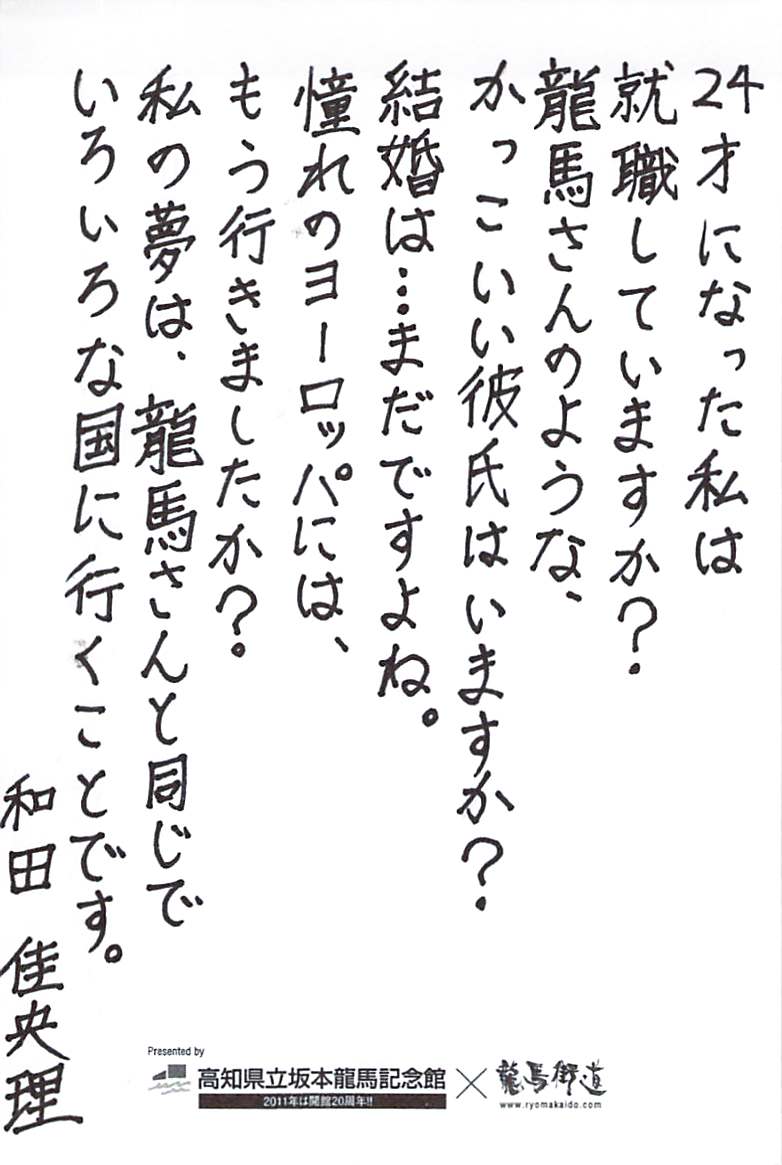 24才になった私は
就職していますか?
龍馬さんのような、
かっこいい彼氏はいますか?
結婚は…まだですよね。
憧れのヨーロッパには、
もう行きましたか?
私の夢は、龍馬さんと同じで
いろいろな国に行くことです。
和田 佳央理
Presented by
高知県立坂本龍馬記念館 × 龍馬街道
2011年は開館20周年!!
www.ryomakaido.com